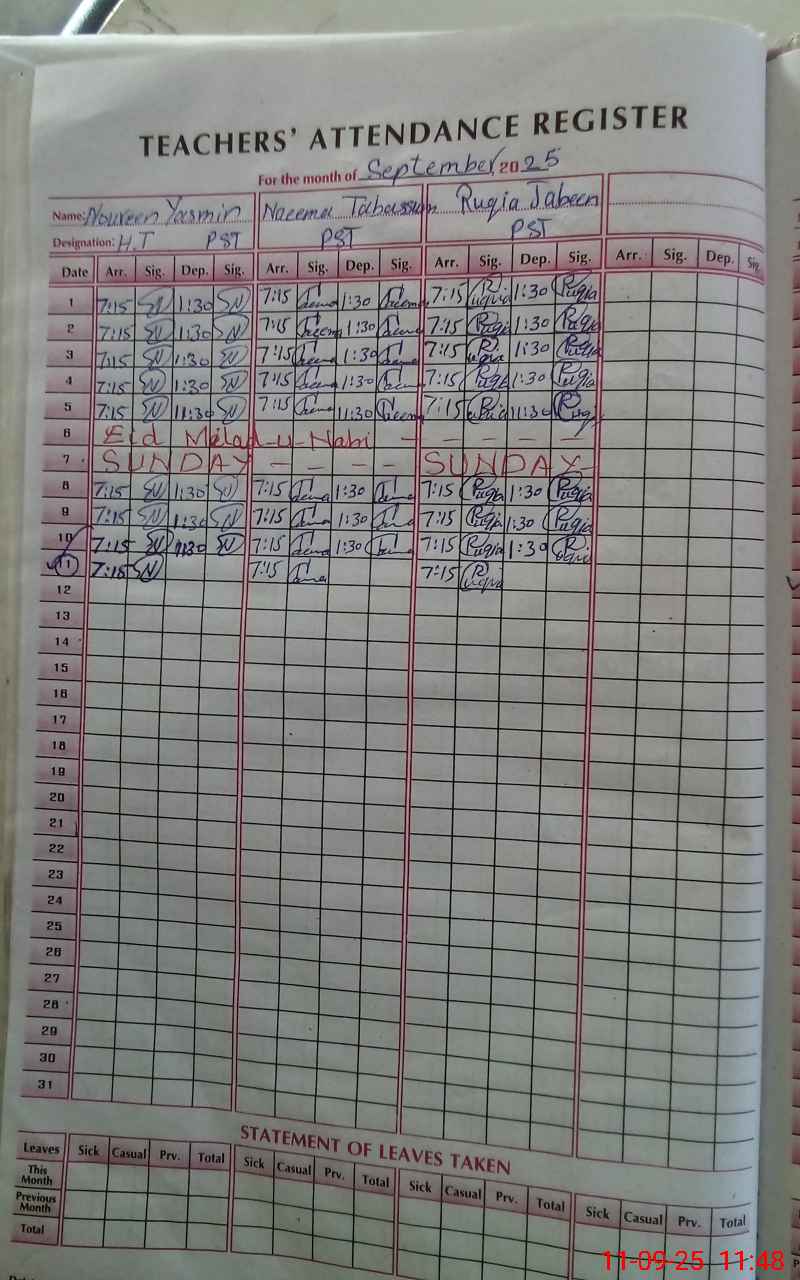 TEACHERS' ATTENDANCE REGISTER
For the month of September, 2025
Name: Noureen Yasmin Naeema Tabassum Ruqia Jabeen
Designation: H.T PST PST PST
Date Arr. Sig. Dep. Sig. Arr. Sig. Dep. Sig. Arr. Sig. Dep. Sig. Arr. Sig. Dep. Sig.
1 7:15 SN 1:30 SN 7:15 1:30 7:15 Ruqia 1:30 Ruqia
2 7:15 SN 1:30 SN 7:15 1:30 7:15 Ruqia 1:30 Ruqia
3 7:15 SN 1:30 SN 7:15 1:30 7:15 Ruqia 1:30 Ruqia
4 7:15 SN 1:30 SN 7:15 1:30 7:15 Ruqia 1:30 Ruqia
5 7:15 SN 11:30 SN 7:15 11:30 7:15 Ruqia 11:30
6 Eid Melad-u-Nabi - - - - -
7 SUNDAY - - - - SUNDAY -
8 7:15 SN 1:30 SN 7:15 1:30 7:15 Ruqia 1:30 Ruqia
9 7:15 SN 1:30 SN 7:15 1:30 7:15 Ruqia 1:30 Ruqia
10 7:15 SN 1:30 SN 7:15 1:30 7:15 Ruqia 1:30 Ruqia
11 7:15 SN 7:15 7:15 Ruqia
12
13
14
15
16
17
18
19
20
21
22
23
24
25
26
27
28
29
30
31
STATEMENT OF LEAVES TAKEN
Leaves Sick Casual Prv. Total Sick Casual Prv. Total Sick Casual Prv. Total Sick Casual Prv. Total
This Month
Previous Month
Total
11-09-25 11:48